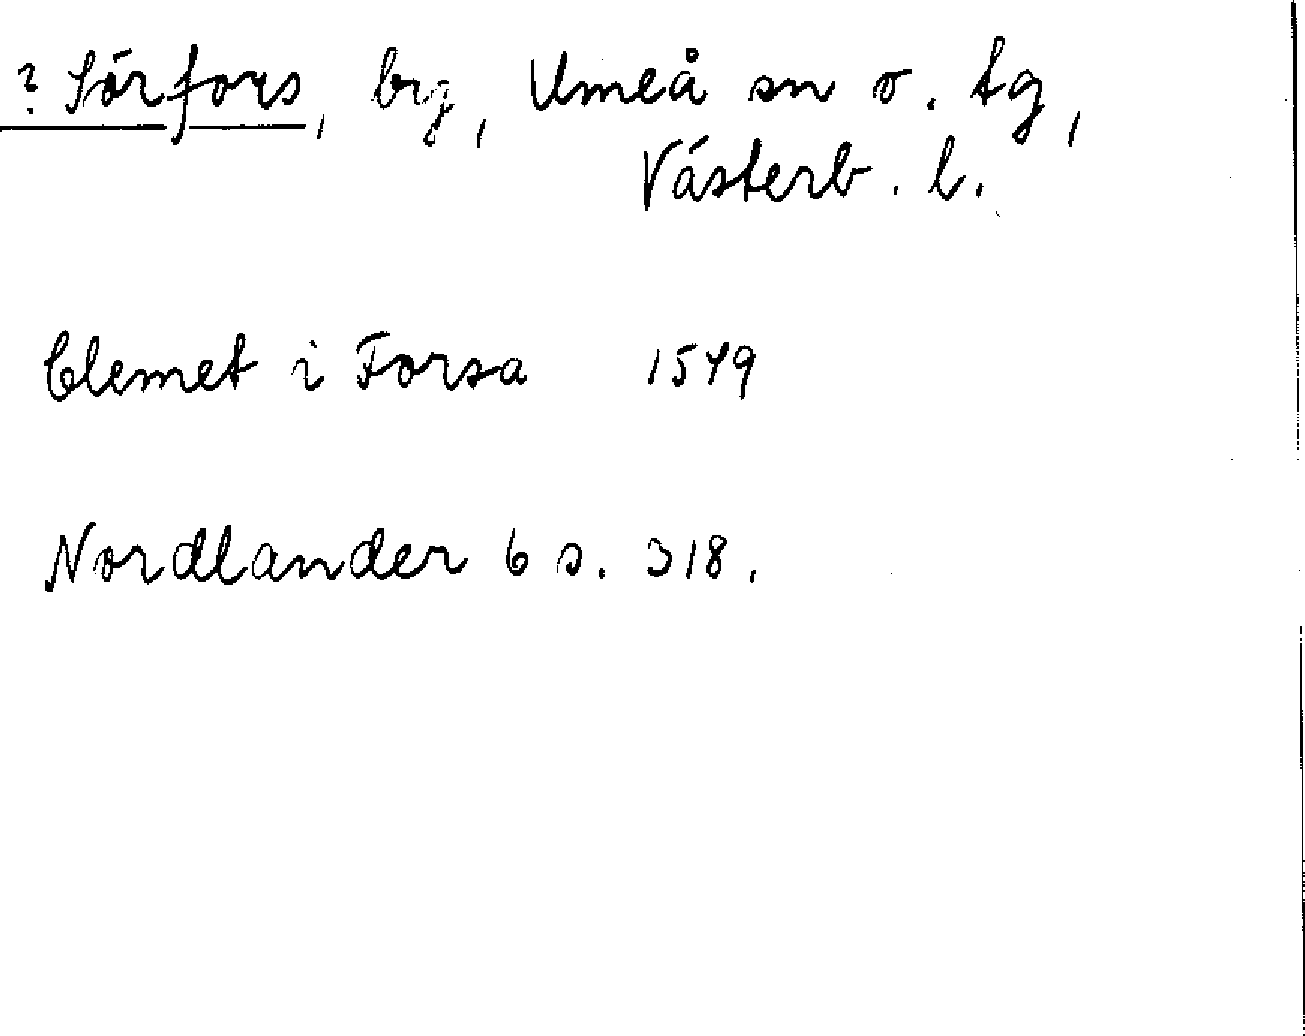 ? Sörfors, by, Umeå sn o. tg,
Västerb. l.
Clemet i Forsa 1579
Nordlander 6 s. 318.